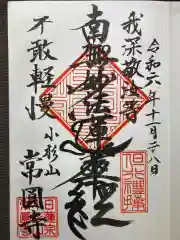 令和六年十一月二八日
我深敬汝等
南無妙法蓮華経
不敢軽慢
小杉山
常圓寺